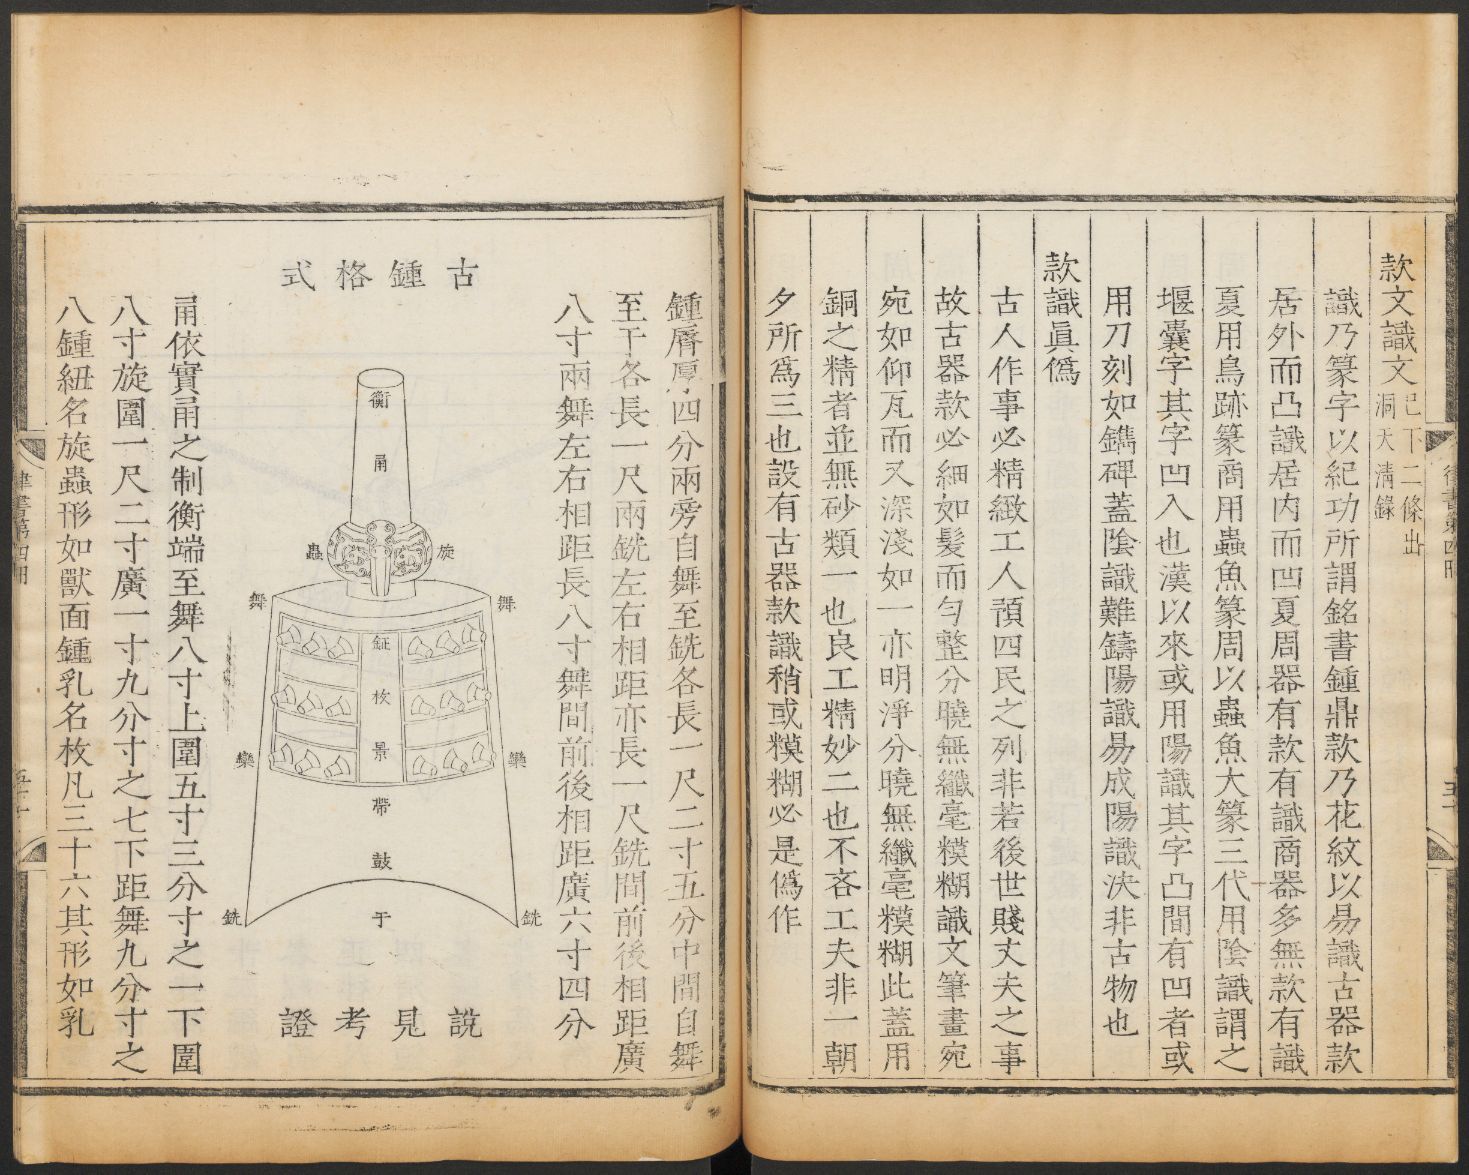 款文識文已下二條出洞天清錄
識乃篆字以紀功所謂銘書鍾鼎款乃花紋以昜識古器款
居外而凸識居内而凹夏周器有款有識商器多無款有識
夏用鳥跡篆商用蟲魚篆周以蟲魚大篆三代用陰識謂之
堰囊字其字凹入也漢以來或用陽識其字凸間有凹者或
用刀刻如鐫碑蓋陰識難鑄陽識易成陽識決非古物也
款識眞僞
古人作事必精緻工人預四民之列非若後世賤丈夫之事
故古器款必細如髮而勻整分曉無纖毫糢糊識文筆畫宛
宛如仰瓦而又深淺如一亦明淨分曉無纖毫糢糊此蓋用
銅之精者並無砂類一也良工精妙二也不吝工夫非一朝
夕所爲三也設有古器款識稍或糢糊必是僞作
律書第四冊
五十
鍾脣厚四分兩旁自舞至銑各長一尺二寸五分中間自舞
至于各長一尺兩銑左右相距亦長一尺銑間前後相距廣
八寸兩舞左右相距長八寸舞間前後相距廣六寸四分
古鍾格式
衡
甬
蟲
旋
舞
舞
鉦
枚
景
欒
欒
帶
鼓
于
銑
銑
說見考證
甬依實甬之制衡端至舞八寸上圍五寸三分寸之一下圍
八寸旋圍一尺二寸廣一寸九分寸之七下距舞九分寸之
八鍾紐名旋蟲形如獸面鍾乳名枚凡三十六其形如乳
律書第四冊
五十一